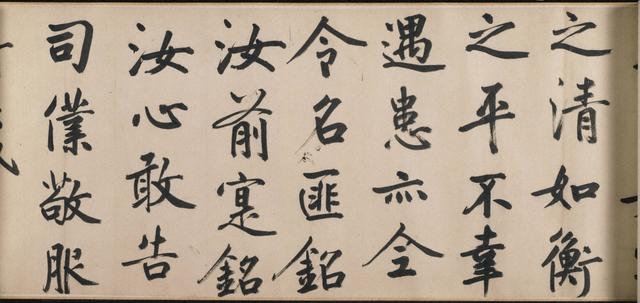 之清如衡
之平不幸
遇患亦全
令名匪銘
汝前寔銘
汝心敢告
司僕敬服